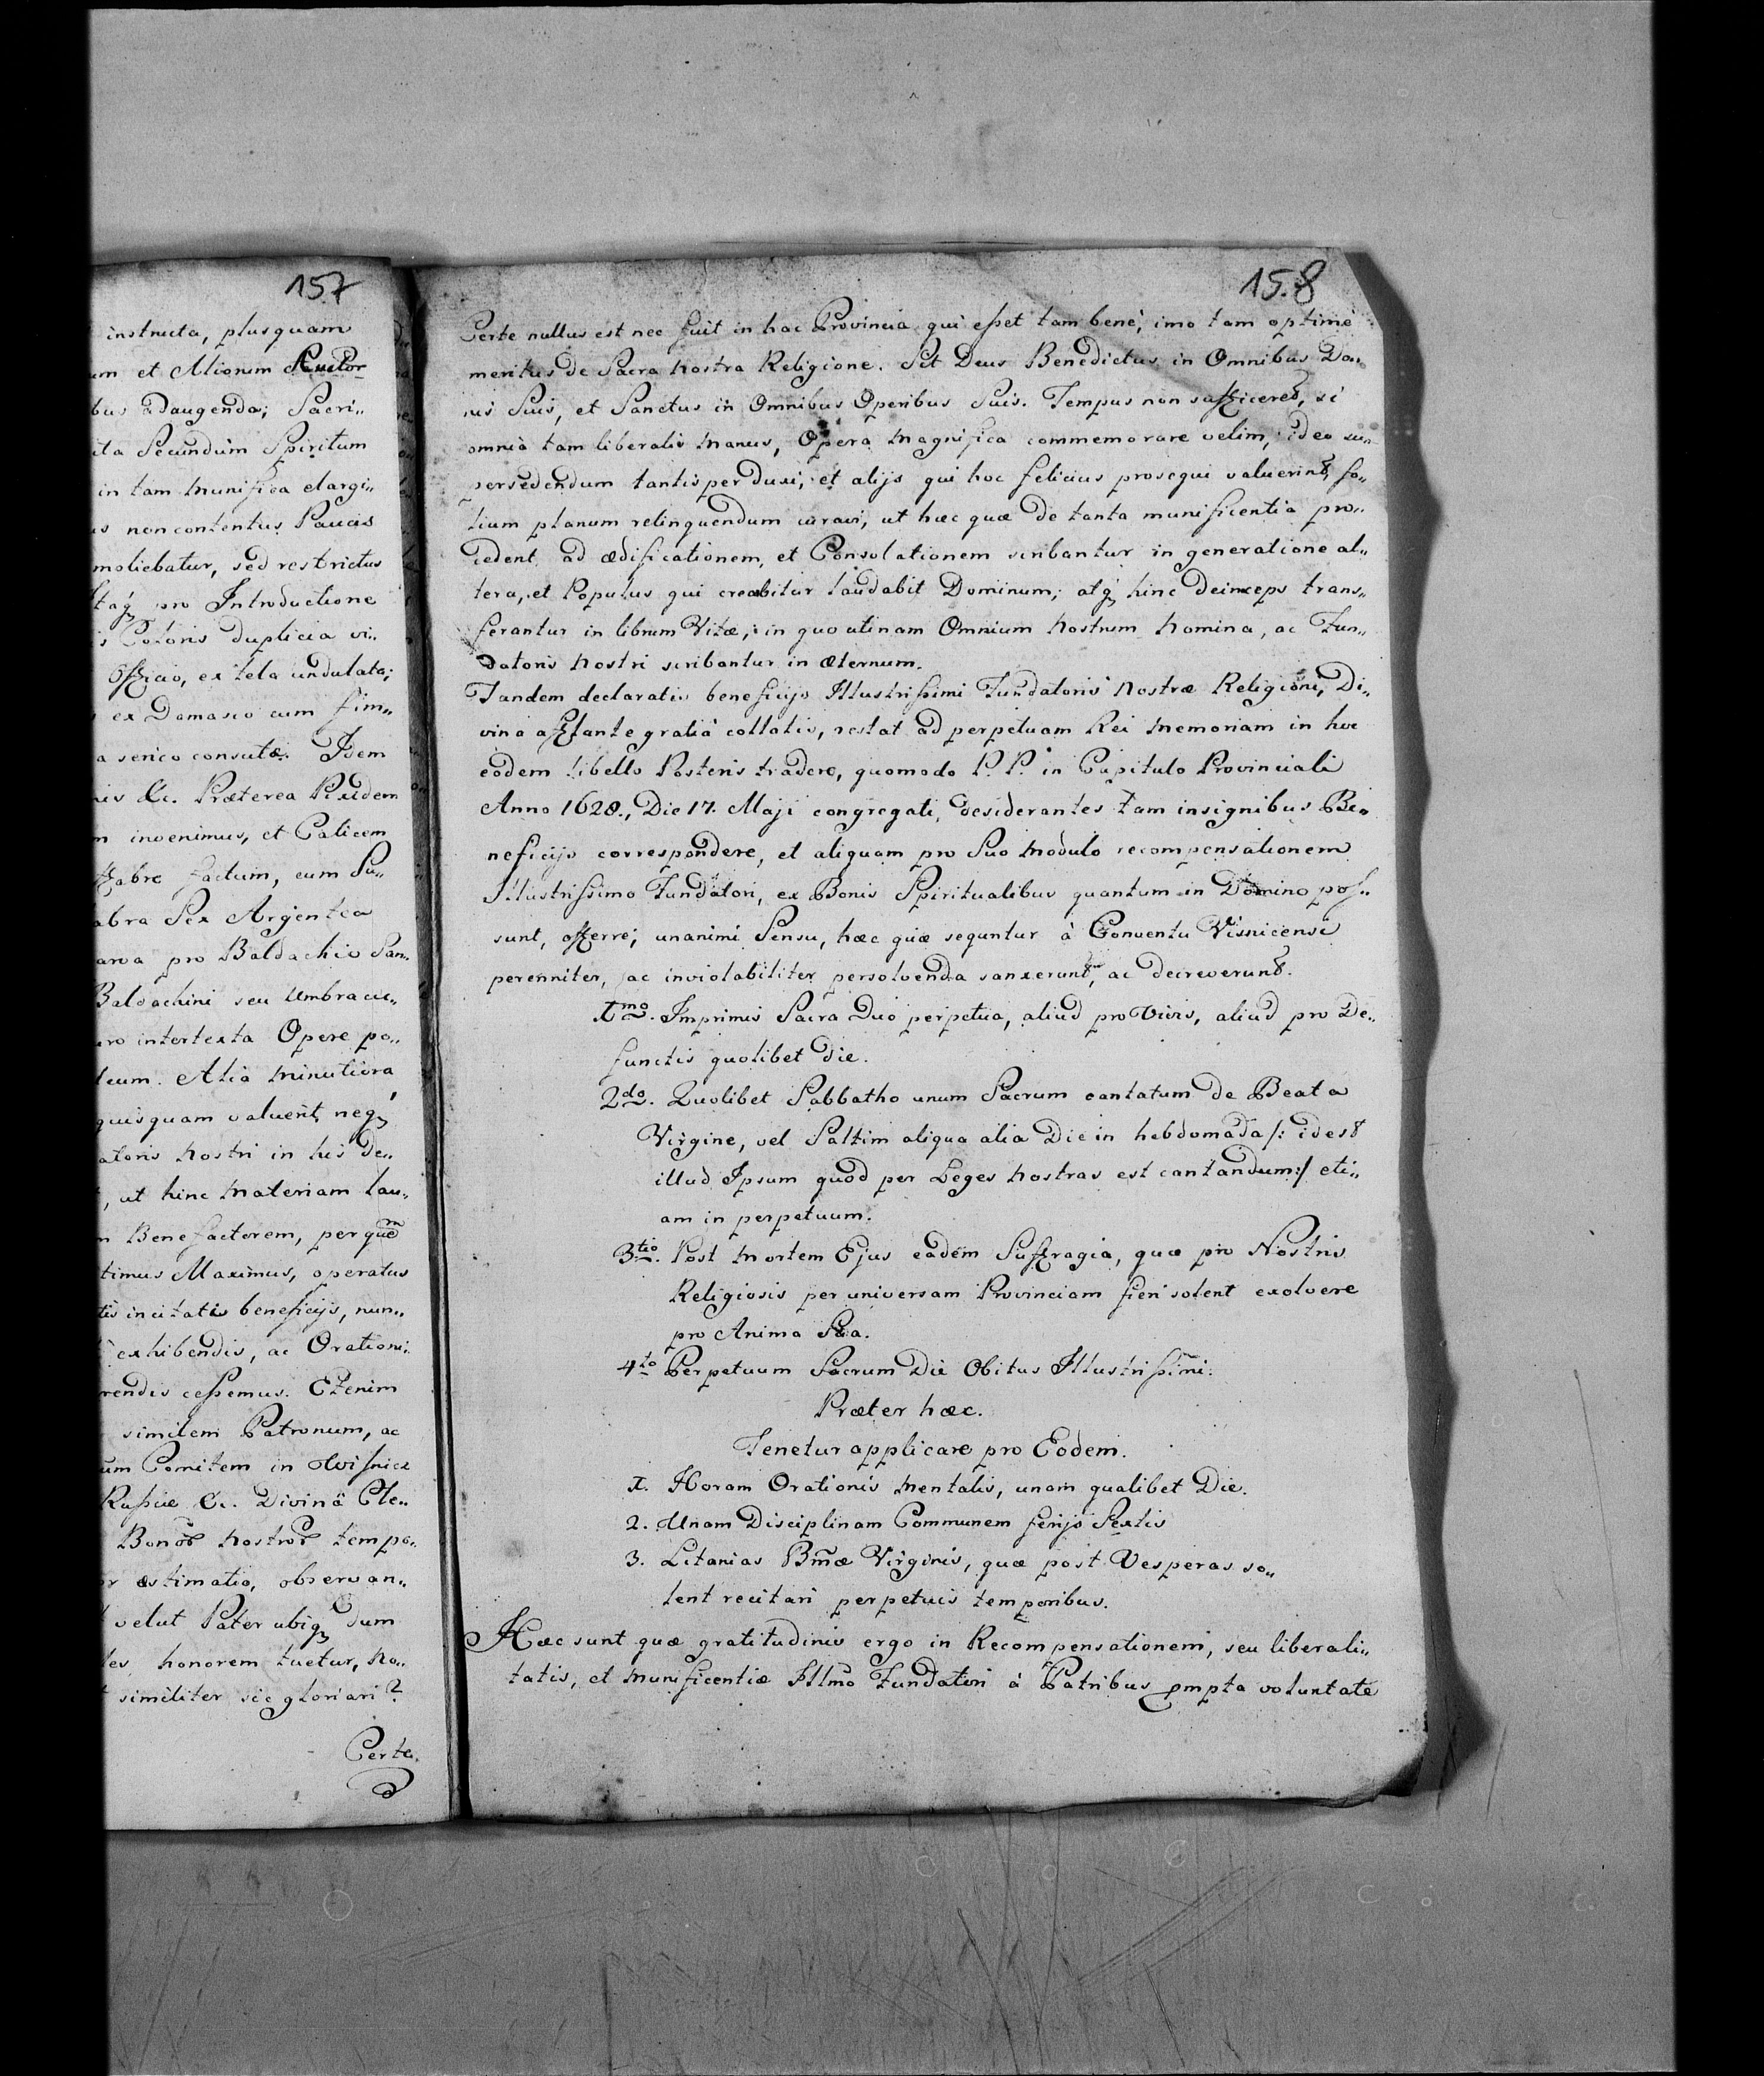 157
instructa, plusquam
um et Aliorum Auctor
bus adaugenda; Sacri„
ita Secundum Spiritum
in tam Munifica elargi„
us non contentus Paucis
moliebatur, sed restrictus
pro Introductione
Coloris duplicia vi„
Officio, ex tela undulata;
ex Damasco cum fim„
a serico consutæ. Idem
nis &c. Præterea Pixidem
m invenimus, et Calicem
fabre factum, cum Su„
abra Sex Argentea
pro Baldachio San„
Baldachini seu Umbracu„
uro intertexta Opere po„
leum. Alia Minutiora
quisquam valuerit, neq
atoris Nostri in his de„
, ut hinc Materiam lau„
n Benefactorem, per quem
timus Maximus, operatus
tis incitatis beneficijs, nun„
exhibendis, ac Orationi„
rendis cessemus. Etenim
similem Patronum, ac
um Comitem in Wisnicz
Russiæ &c. Divinâ Cle„
Bonor Nostror tempo„
or æstimatio, observan„
velut Pater ubiq dum
les honorem tuetur, No„
t similiter sic gloriari?
Certe.
158
Certe nullus est nec fuit in hac Provincia qui esset tam bene, imo tam optime
meritus de Sacra Nostra Religione. Sit Deus Benedictus in Omnibus Do„
nis Suis, et Sanctus in Omnibus Operibus Suis. Tempus non sufficeret, si
omnia tam liberalis Manus, Opera Magnifica commemorare velim, ideo su„
persedendum tantisper duxi, et alijs qui hoc felicius prosequi valuerint, fo„
lium planum relinquendum curavi, ut hæc quæ de tanta munificentia pro„
cedent, ad ædificationem, et Consolationem scribantur in generatione al„
tera, et Populus qui creabitur laudabit Dominum; atq hinc deinceps trans„
ferantur in librum Vitæ, in quo utinam Omnium Nostrum Nomina, ac Fun„
datoris Nostri scribantur in æternum.
Tandem declaratis beneficijs Illustrissimi Fundatoris Nostræ Religioni, Di„
vina afflante gratiâ collatis, restat ad perpetuam Rei Memoriam in hoc
eodem libello Posteris tradere, quomodo P.P. in Capitulo Provinciali
Anno 1628., Die 17. Maji congregati, desiderantes tam insignibus Be„
neficijs correspondere, et aliquam pro Suo Modulo recompensationem
Illustrissimo Fundatori, ex Bonis Spiritualibus quantum in Domino pos„
sunt, offerre; unanimi Sensu, hæc quæ sequntur à Conventu Visnicensi
perenniter, ac inviolabiliter persolvenda sanxerunt, ac decreverunt.
1mo. Imprimis Sacra Duo perpetua, aliud pro Vivis, aliud pro De„
functis quolibet die.
2do. Quolibet Sabbatho unum Sacrum cantatum de Beata
Virgine, vel Saltim aliqua alia Die in hebdomada /: idest
illud Ipsum quod per Leges Nostras est cantandum :/ eti„
am in perpetuum.
3tio. Post Mortem Ejus eadem Suffragia, quæ pro Nostris
Religiosis per universam Provinciam fieri solent exolvere
pro Anima Sua.
4to Perpetuum Sacrum Die Obitus Illustrissimi.
Præter hæc.
Tenetur applicare pro Eodem.
1. Horam Orationis Mentalis, unam qualibet Die.
2. Unam Disciplinam Communem ferijs Sextis
3. Litanias Bmæ Virginis, quæ post Vesperas so„
lent recitari perpetuis temporibus.
Hæc sunt quæ gratitudinis ergo in Recompensationem, seu liberali„
tatis, et Munificentiæ Illmo Fundatori à Patribus prompta voluntate